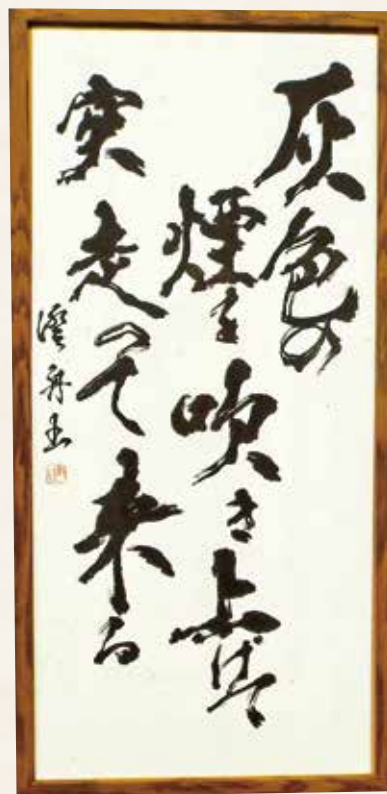 灰色の
煙を吹き上げて
突走って来る